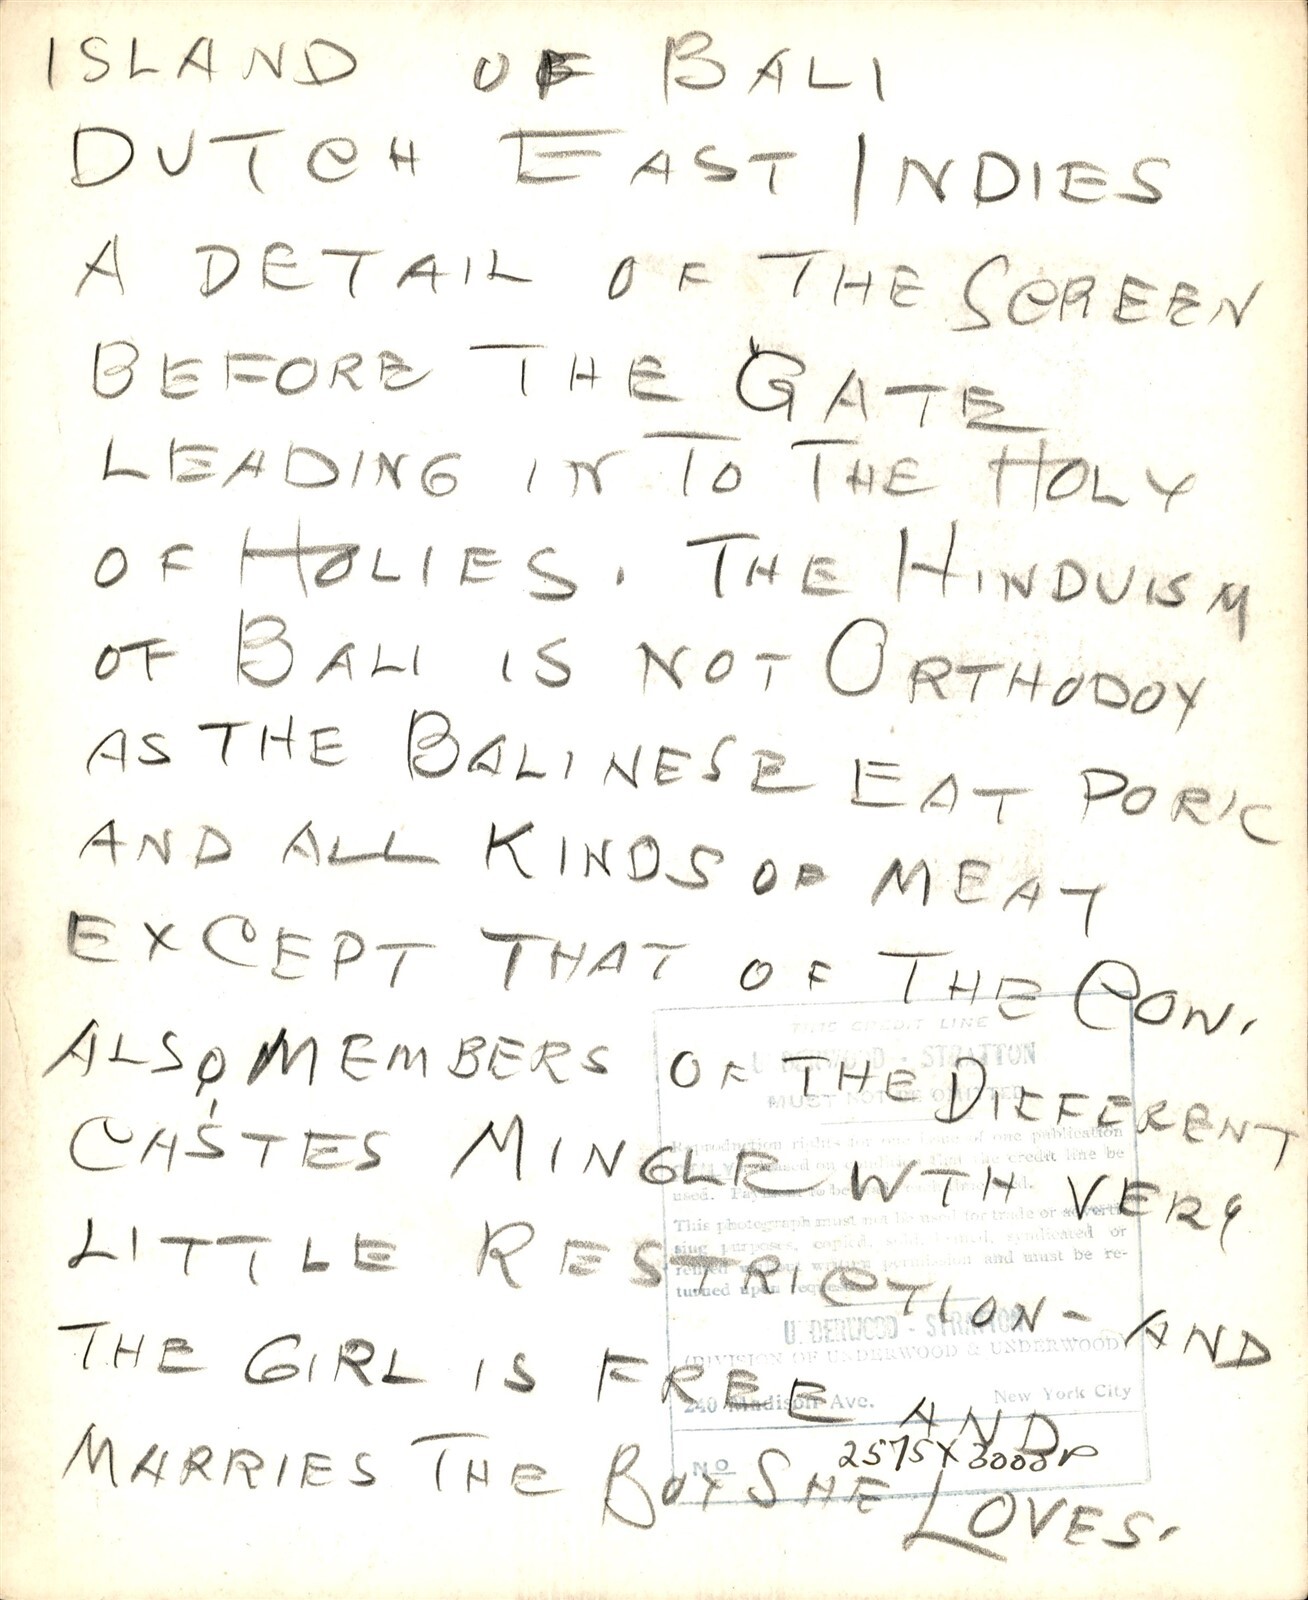 ISLAND OF BALI
DUTCH EAST INDIES
A DETAIL OF THE SCREEN
BEFORE THE GATE
LEADING IN TO THE HOLY
OF HOLIES. THE HINDUISM
OF BALI IS NOT ORTHODOX
AS THE BALINESE EAT PORK
AND ALL KINDS OF MEAT
EXCEPT THAT OF THE COW.
ALSO, MEMBERS OF THE DIFFERENT
CASTES MINGLE WTH VERY
LITTLE RESTRICTION - AND
THE GIRL IS FREE AND
MARRIES THE BOY SHE LOVES.
THIS CREDIT LINE
UNDERWOOD - STRATTON
MUST NOT BE OMITTED
Reproduction rights for one issue of one publication
ONLY, based on condition that the credit line be
used. Payment to be
This photograph must not be used for trade or adverti-
sing purposes, copied, sold, syndicated or
rented without written permission and must be re-
turned upon request.
UNDERWOOD - STRATTON
(DIVISION OF UNDERWOOD & UNDERWOOD)
240 Madison Ave. New York City
No 2575X3000